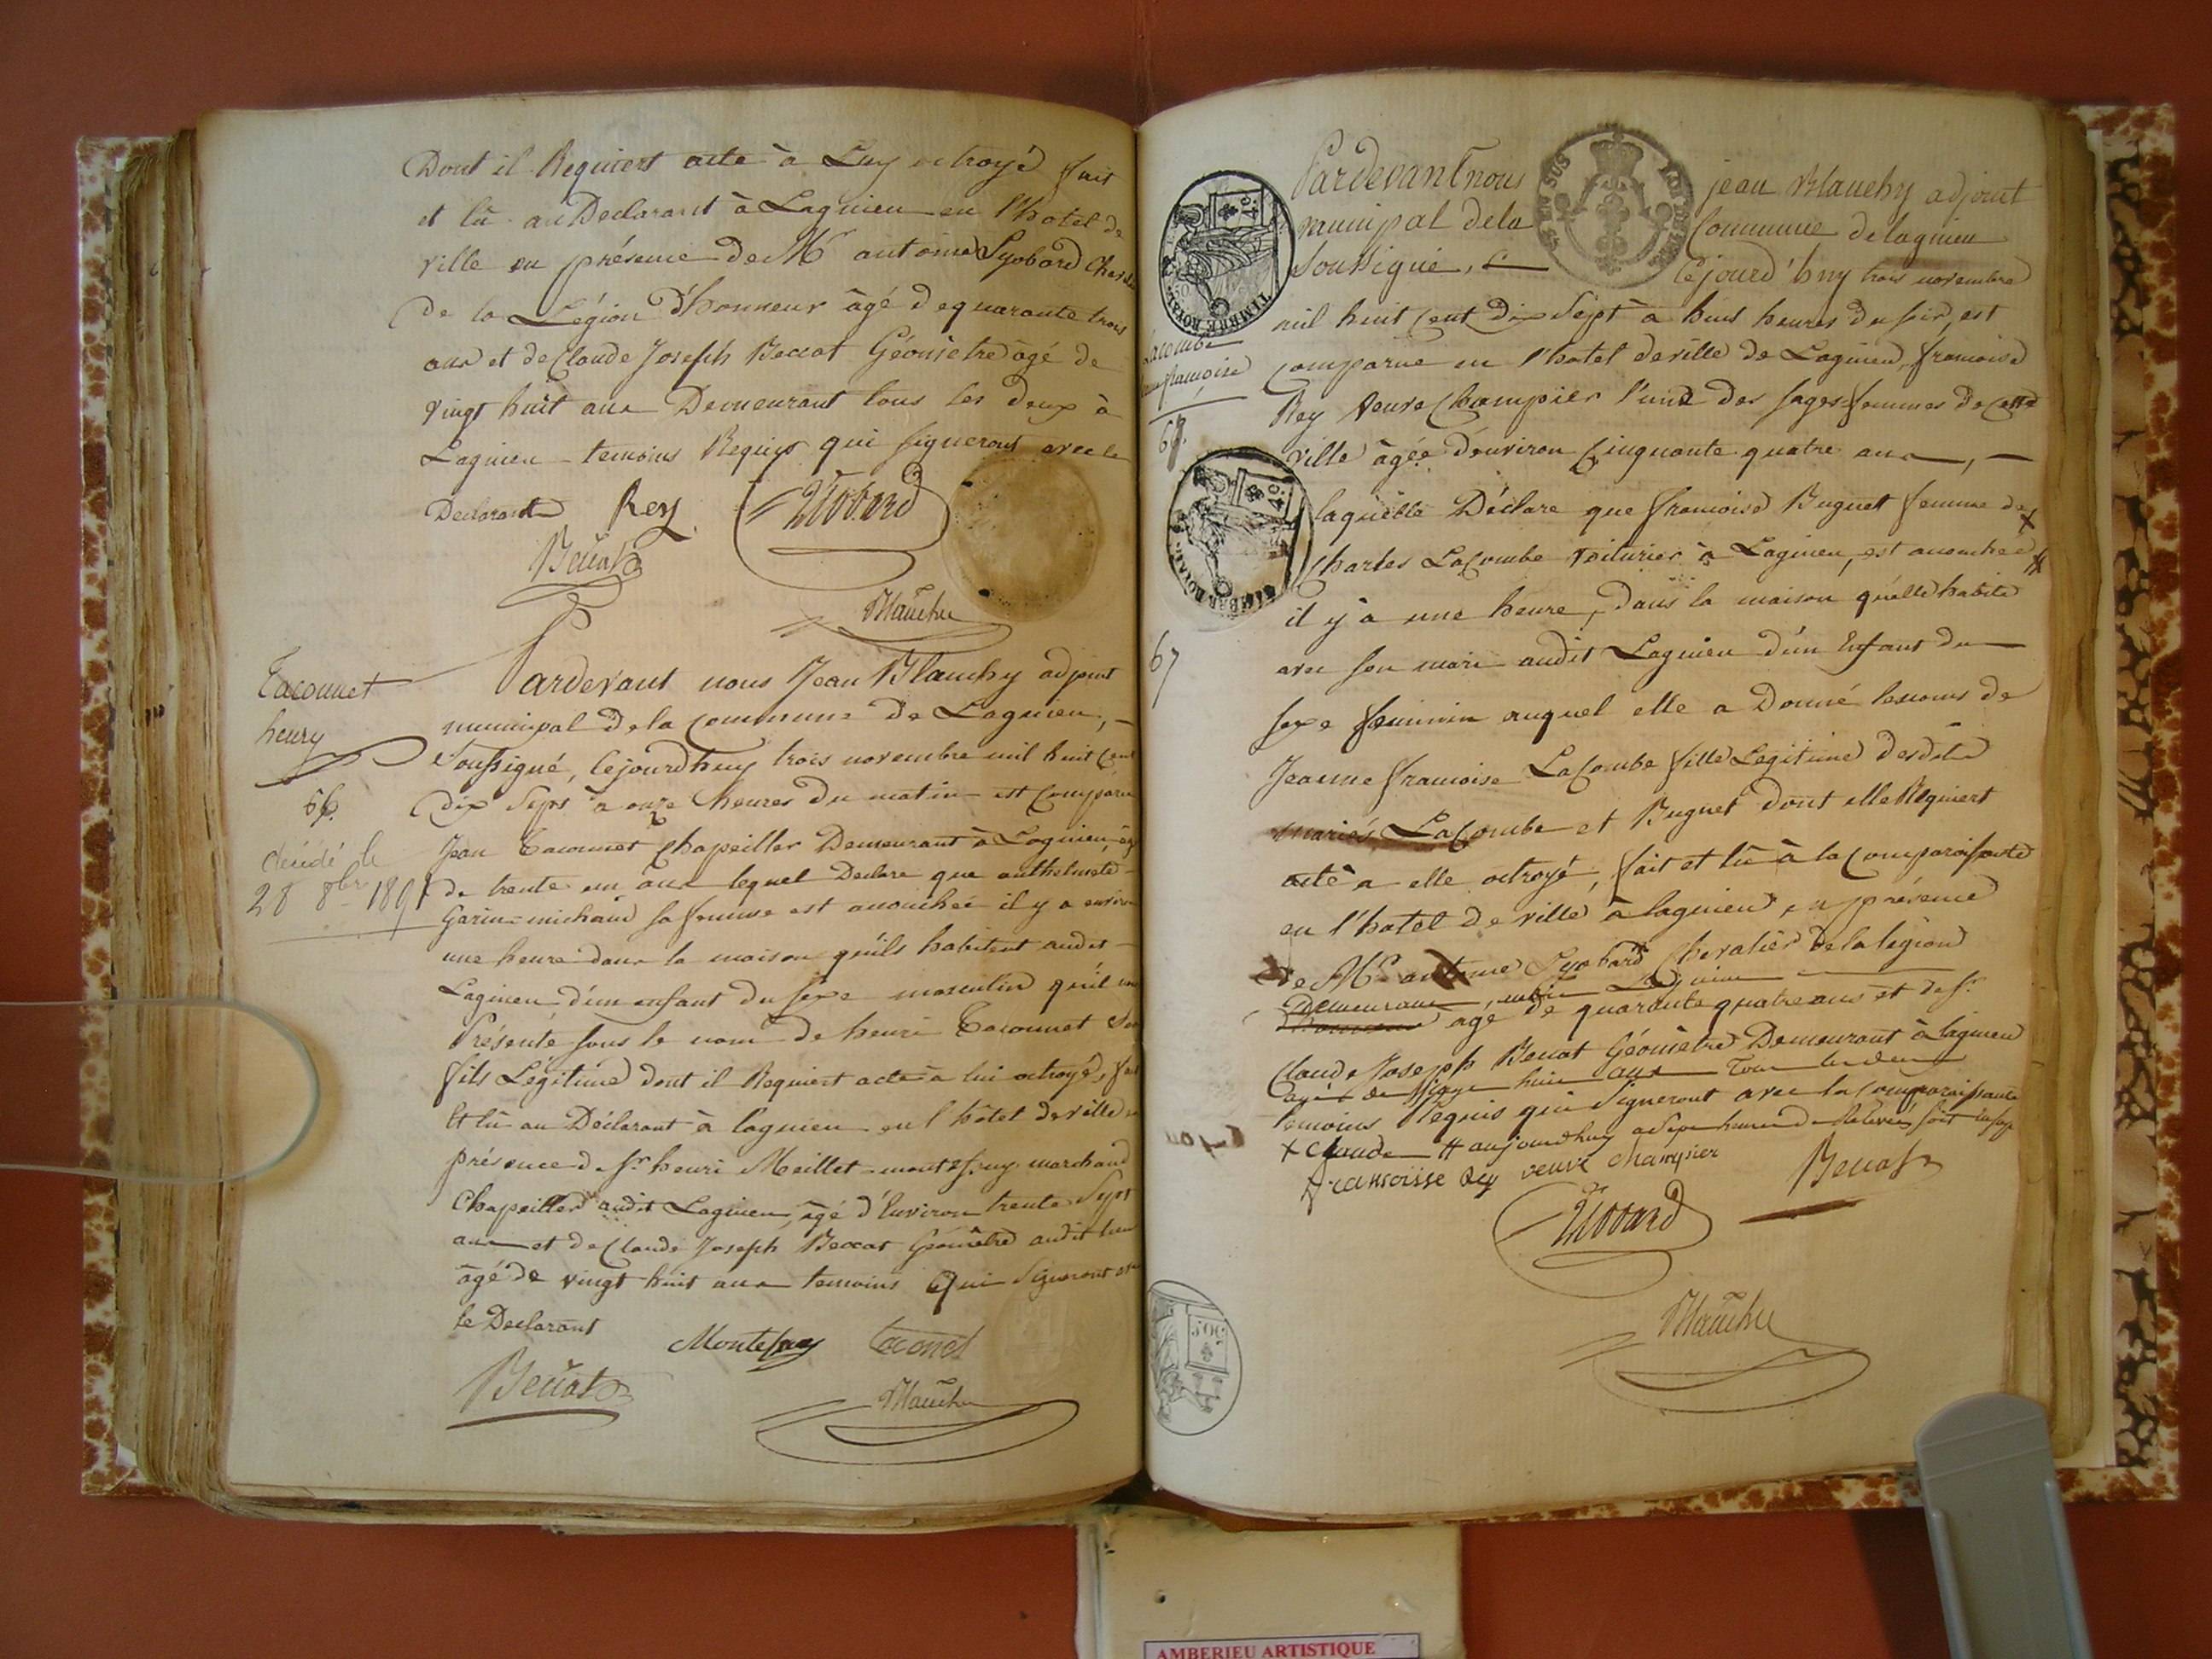 Dont il Requiert acte à Luy octroyé fait
et lû au Déclarant à Lagnieu en l'hotel de
ville en présence de Mr antoine Lyobard
de la Légion d'honneur âgé de quarante trois
ans et de Claude Joseph Beccat Géomètre âgé de
Vingt huit ans Demeurant tous les deux à
Lagnieu temoins Requis qui signeront avec le
Declarant Rey Liobard
Beccat
Blanchy
Taconnet
henry
66.
décédé le
28 8bre 1891
Pardevant nous Jean Blanchy adjoint
municipal de la commune de Lagnieu,
Soussigné, Cejourdhuy trois novembre mil huit Cent
dix Sept à onze heures du matin est Comparu
Jean Taconnet Chapeiller Demeurant à Lagnieu âgé
de trente un ans lequel Declare que anthelmette
Garin-michaud sa femme est accouchée il y a environ
une heure dans la maison qu'ils habitent audit
Lagnieu d'un enfant du sèxe masculin qu'il
Présenté sous le nom de henri Taconnet Son
fils Légitime dont il Requiert acte à lui octroyé, fait
Et lû au Déclarant à lagnieu en l'hôtel de ville
présence de Sr henri Meillet-montessuy marchand
Chapeiller audit Lagnieu, âgé d'Environ trente Sept
ans et de Claude Joseph Beccat Géomètre audit lieu
âgé de vingt huit ans temoins Qui Signeront
le Declarant Montessuy Taconet
Beccat
Blanchy
Pardevant nous jean Blanchy adjoint
municipal dela Commune de lagnieu
Soussigné, Cejourd'huy trois novembre
mil huit Cent Dix Sept à huit heures du soir, est
Lacombe
françoise
67.
67
TIMBRE ROYAL
comparue en l'hotel de ville de Lagnieu, francoise
Rey Veuve Champier l'une des sages femmes de Cette
ville âgée d'environ Cinquante quatre ans,
laquelle Déclare que francoise Buguet femme de X
Charles LaCombe Voiturier à Lagnieu, est accouchée #
il y a une heure, dans la maison qu'elle habite
avec son mari audit Lagnieu d'un Enfant du
sexe féminin auquel elle a Donné les noms de
Jeanne francoise LaCombe fille Legitime desdits
mariés LaCombe et Buguet dont elle Requiert
acte à elle octroyé, fait et lû à la Comparaissante
en l'hotel de ville à lagnieu en présence
de Mr antoine Lyobard Chevalier de la légion
Demeurant Lagnieu
âgé de quarante quatre ans et de Sr
Claude Joseph Beccat Géomètre Demeurant à lagnieu
âgé de vingt huit ans Tous les deux
temoins Requis qui Signeront avec la Comparaissante
X Claude # aujourdhuy à Sept heures de
francoisse Rey veuve champier Beccat
Liobard
Blanchy
50C
AMBERIEU ARTISTIQUE